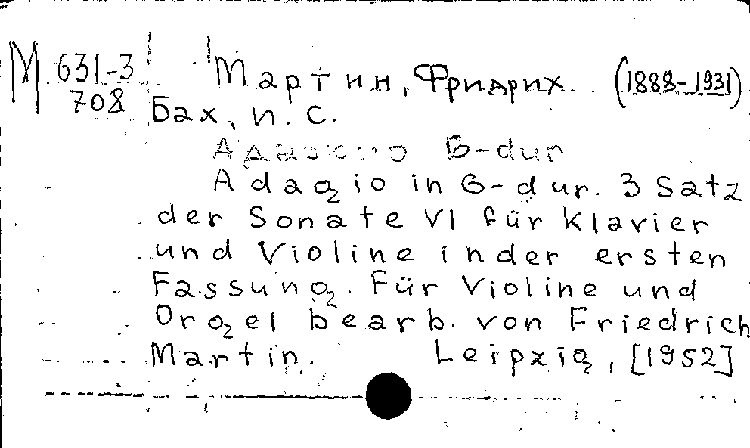 М 631-3 Мартин, Фридрих. (1888-1931)
708 Бах, И. С.
Адажио G-dur
Adagio in G-dur. 3 Satz
der Sonate VI für Klavier
und Violine in der ersten
Fassung. Für Violine und
Orgel bearb. von Friedrich
Martin. Leipzig, [1952]